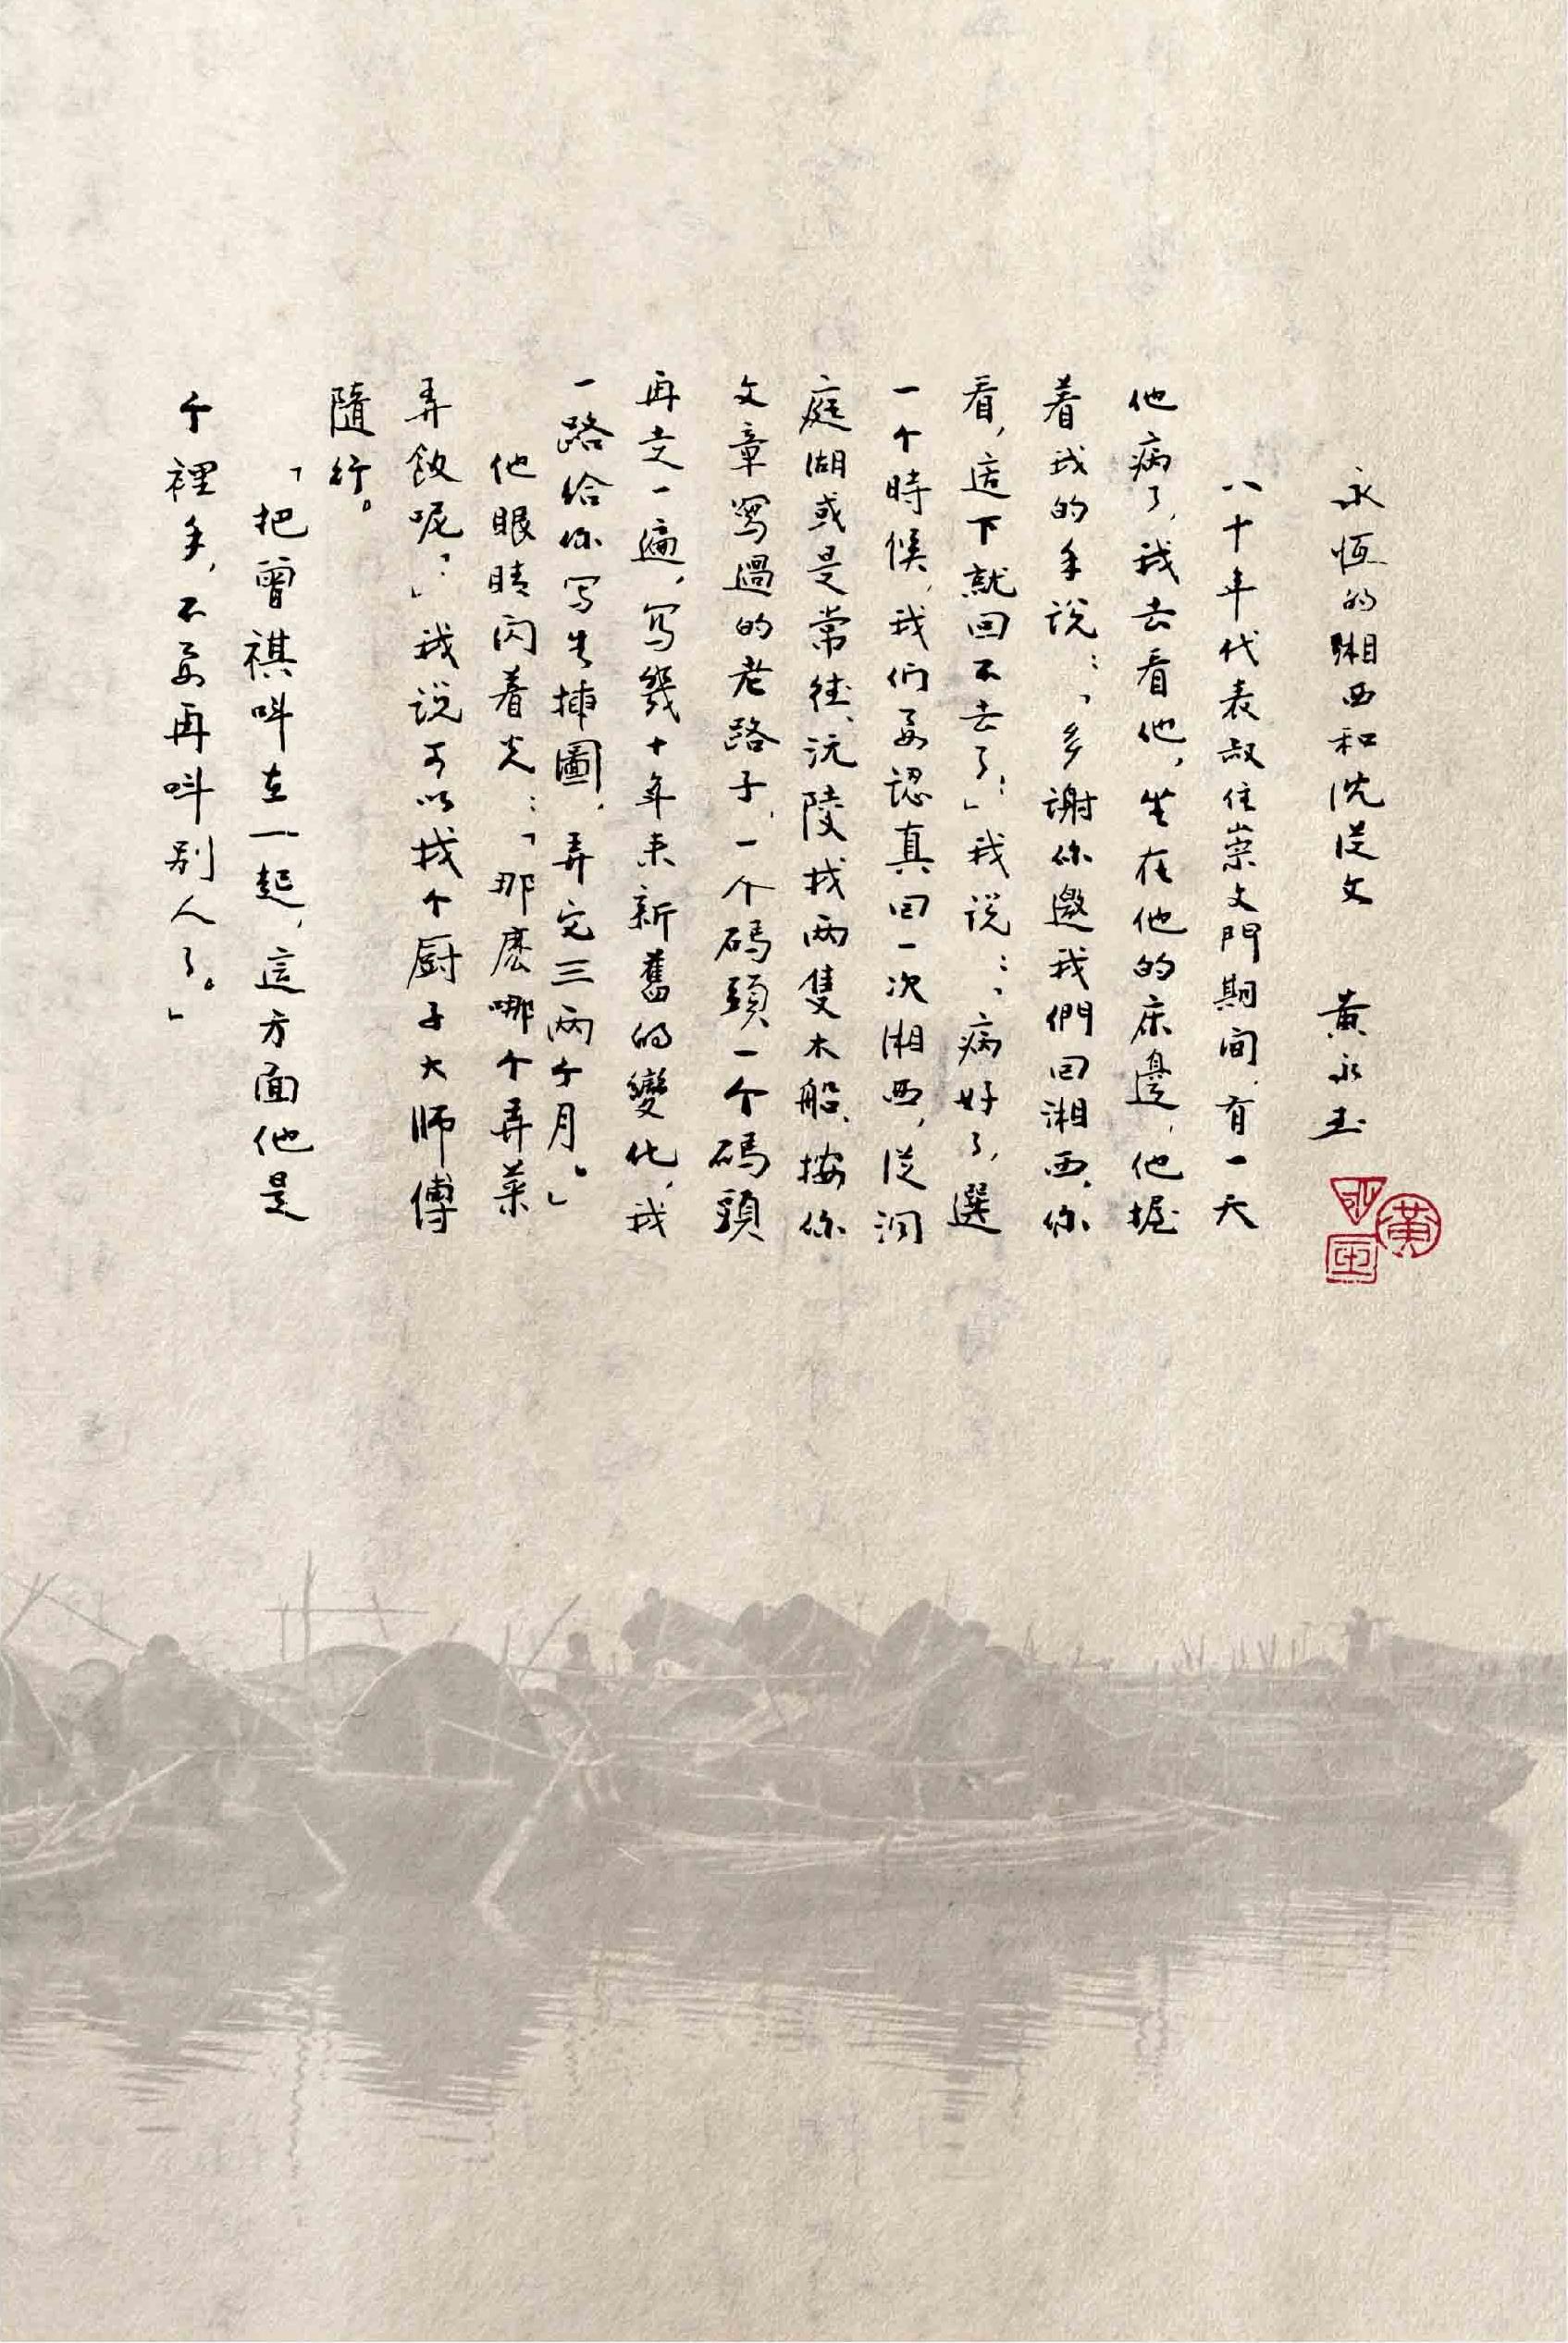 永恆的湘西和沈从文 黄永玉
八十年代表叔住崇文門期间，有一天
他病了，我去看他，坐在他的床邊，他握
着我的手说：「多謝你邀我們回湘西，你
看，這下就回不去了！」我说：「病好了，選
一个時候，我们要認真回一次湘西，从洞
庭湖或是常德、沅陵找两隻木船，按你
文章寫過的老路子，一个碼頭一个碼頭
再走一遍，写幾十年来新舊的變化，我
一路给你写生插圖，弄完三两个月。」
他眼睛闪着光：「那麽哪个弄菜
弄飯呢？」我说可以找个厨子大师傅
隨行。
「把曾祺叫在一起，這方面他是
个裡手，不要再叫别人了。」
黄永玉